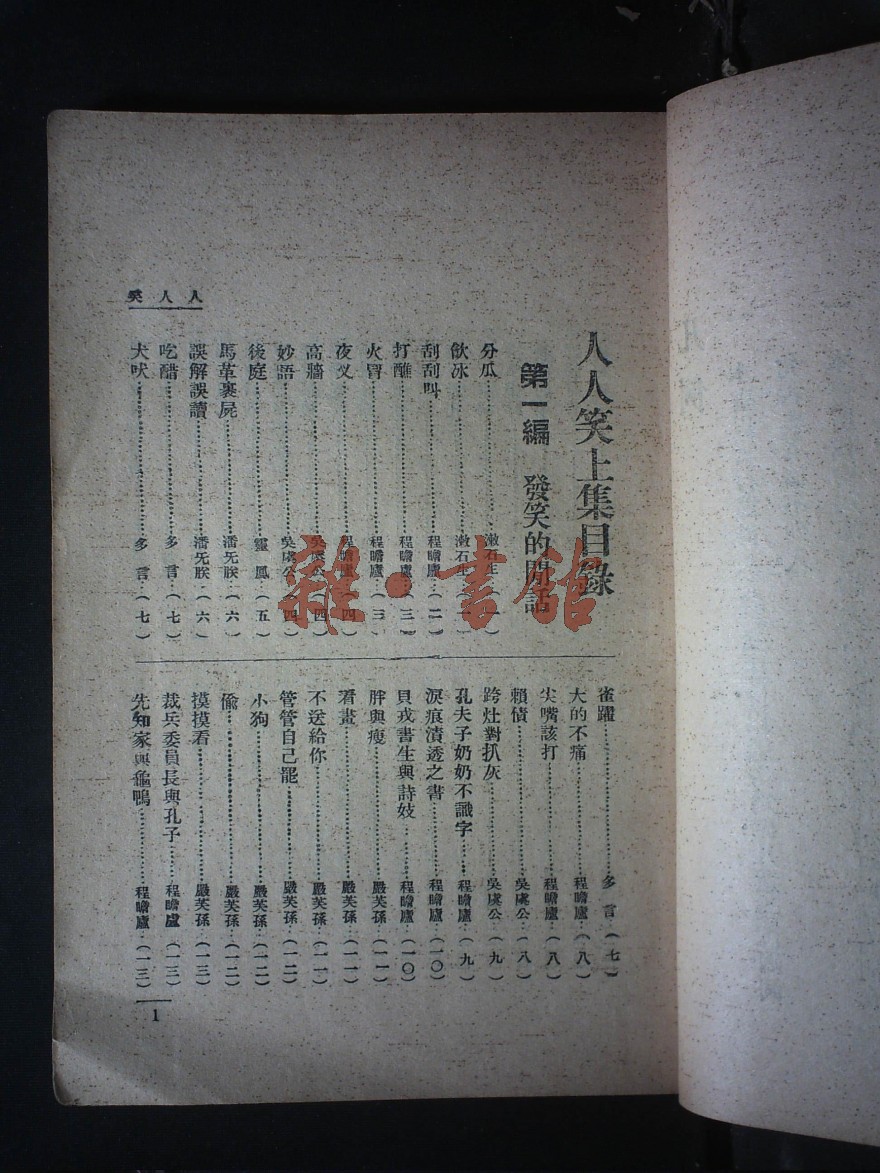 人人笑
人人笑上集目錄
第一編 發笑的閒話
分瓜………漱石生…(一)
飲冰………漱石生…(一)
刮刮叫………程瞻廬…(二)
打醮………程瞻廬…(三)
火冒………程瞻廬…(三)
夜叉………程瞻廬…(四)
高牆………吳虞公…(四)
妙語………吳虞公…(四)
後庭………靈鳳…(五)
馬革裹屍………潘旡朕…(六)
誤解誤讀………潘旡朕…(六)
吃醋………多言…(七)
犬吠………多言…(七)
雀躍………多言…(七)
大的不痛………程瞻廬…(八)
尖嘴該打………程瞻廬…(八)
賴債………吳虞公…(八)
跨灶對扒灰………吳虞公…(九)
孔夫子奶奶不識字………程瞻廬…(九)
淚痕漬透之書………程瞻廬…(一〇)
貝戎書生與詩妓………程瞻廬…(一〇)
胖與瘦………嚴芙孫…(一一)
看畫………嚴芙孫…(一一)
不送給你………嚴芙孫…(一一)
管管自己罷………嚴芙孫…(一二)
小狗………嚴芙孫…(一二)
偷………嚴芙孫…(一二)
摸摸看………嚴芙孫…(一三)
裁兵委員長與孔子………程瞻廬…(一三)
先知家與龜鴨………程瞻廬…(一三)
1
雜·書館